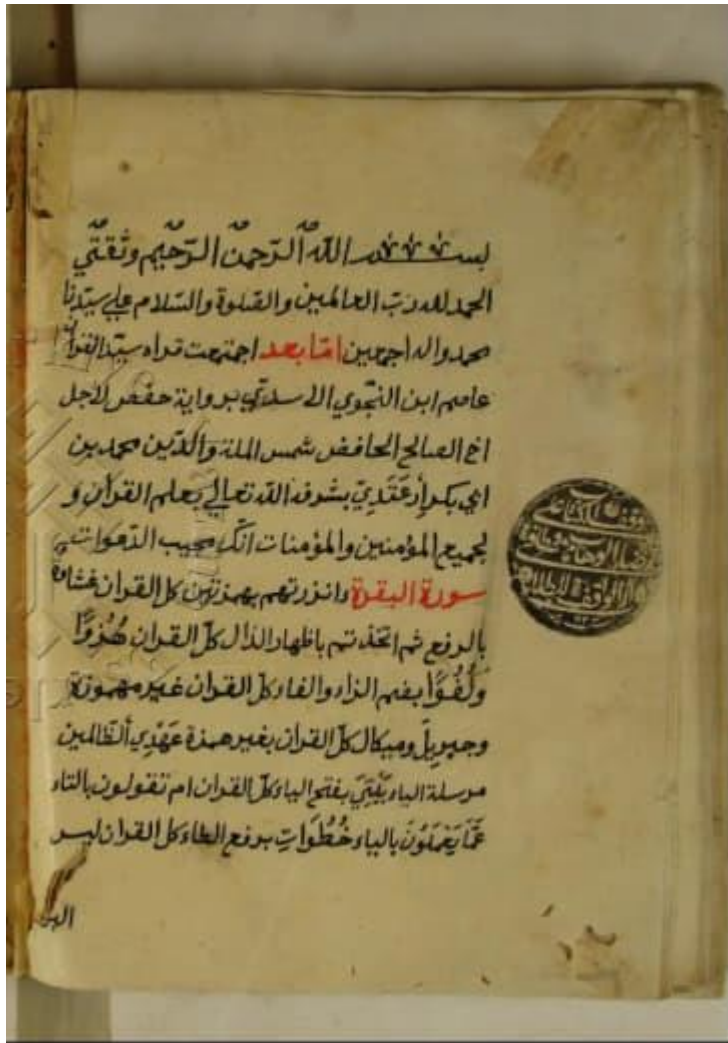 بسم الله الرّحمن الرّحيم وثقتي
الحمد لله ربّ العالمين والصّلوة والسّلام علي سيّدنا
محمد واله اجمعين امّا بعد اجتمعت قراه سيّد القران
عاصم ابن النجّوي الاسدي برواية حفص لاجل
اخ الصالح الحافض شمس الملة والدّين محمد بن
ابي بكر بشرف الله تعالي بعلم القران و
لجميع المؤمنين والمؤمنات انّك مجيب الدّعوات
سورة البقرة ءانذرتهم بهمزتين كل القران غشاوة
بالرفع ثم اتخذتم باظهار الذال كلّ القران هُزُوًا
وكُفُوًا بضم الزاء والفاء كلّ القران غير مهموزة
وجبريل وميكال كلّ القران بغير همزة عَهْدِي ألظّالمين
مرسلة الياء بَيْتِيَ بفتح الياء كلّ القران ام تقولون بالتاء
عَمَّا يَعْمَلُونَ بالياء خُطُوَاتِ برفع الطاء كل القران ليس
البر